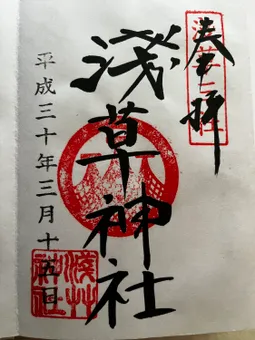 奉拝
浅草神社
平成三十年三月十五日
淺艸
神社